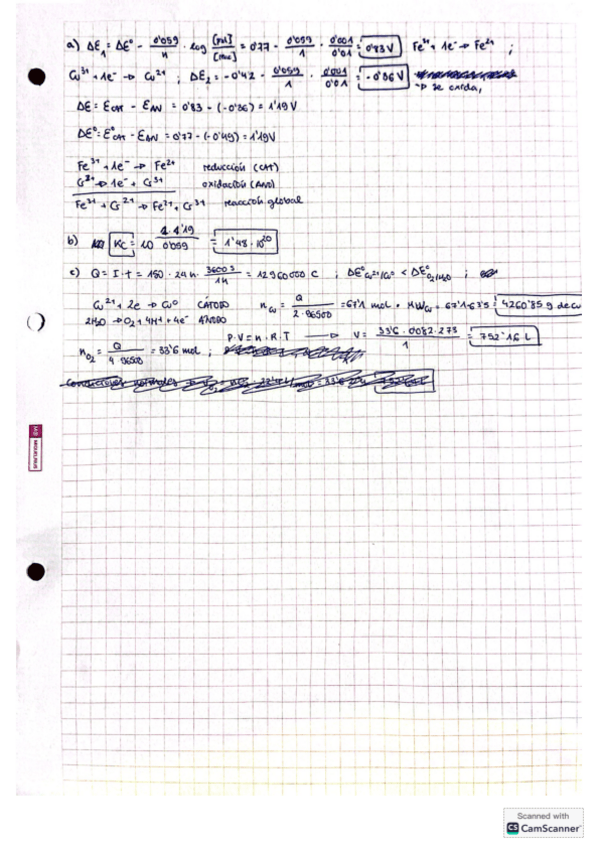 a) ΔE₁ = ΔE° - 0'059/n · log [red]/[ox] = 0'77 - 0'059/1 · 0'001/0'01 = 0'83 V Fe³⁺ + 1e⁻ → Fe²⁺ ;
Cr³⁺ + 1e⁻ → Cr²⁺ ; ΔE₂ = -0'42 - 0'059/1 · 0'001/0'01 = -0'36 V → se oxida,
ΔE = Ecat - EAN = 0'83 - (-0'36) = 1'19 V
ΔE° = E°cat - EAN = 0'77 - (-0'42) = 1'19 V
Fe³⁺ + 1e⁻ → Fe²⁺ reducción (CAT)
Cr²⁺ → 1e⁻ + Cr³⁺ oxidación (ANO)
Fe³⁺ + Cr²⁺ → Fe²⁺ + Cr³⁺ reacción global
b) Kc = 10 1·1'19/0'059 = 1'48 · 10²⁰
c) Q = I · t = 150 · 24 h · 3600 s/1h = 12960000 C ; ΔE°Cu²⁺/Cu° < ΔE°O₂/H₂O ;
Cu²⁺ + 2e → Cu° CÁTODO nCu = Q/2·96500 = 67'1 mol · MWCu = 67'1·63'5 = 4260'85 g de Cu
2H₂O → O₂ + 4H⁺ + 4e⁻ ÁNODO
P·V = n·R·T → V = 33'6 · 0'082 · 273/1 = 752'16 L
nO₂ = Q/4·96500 = 33'6 mol ;
Scanned with
CS CamScanner